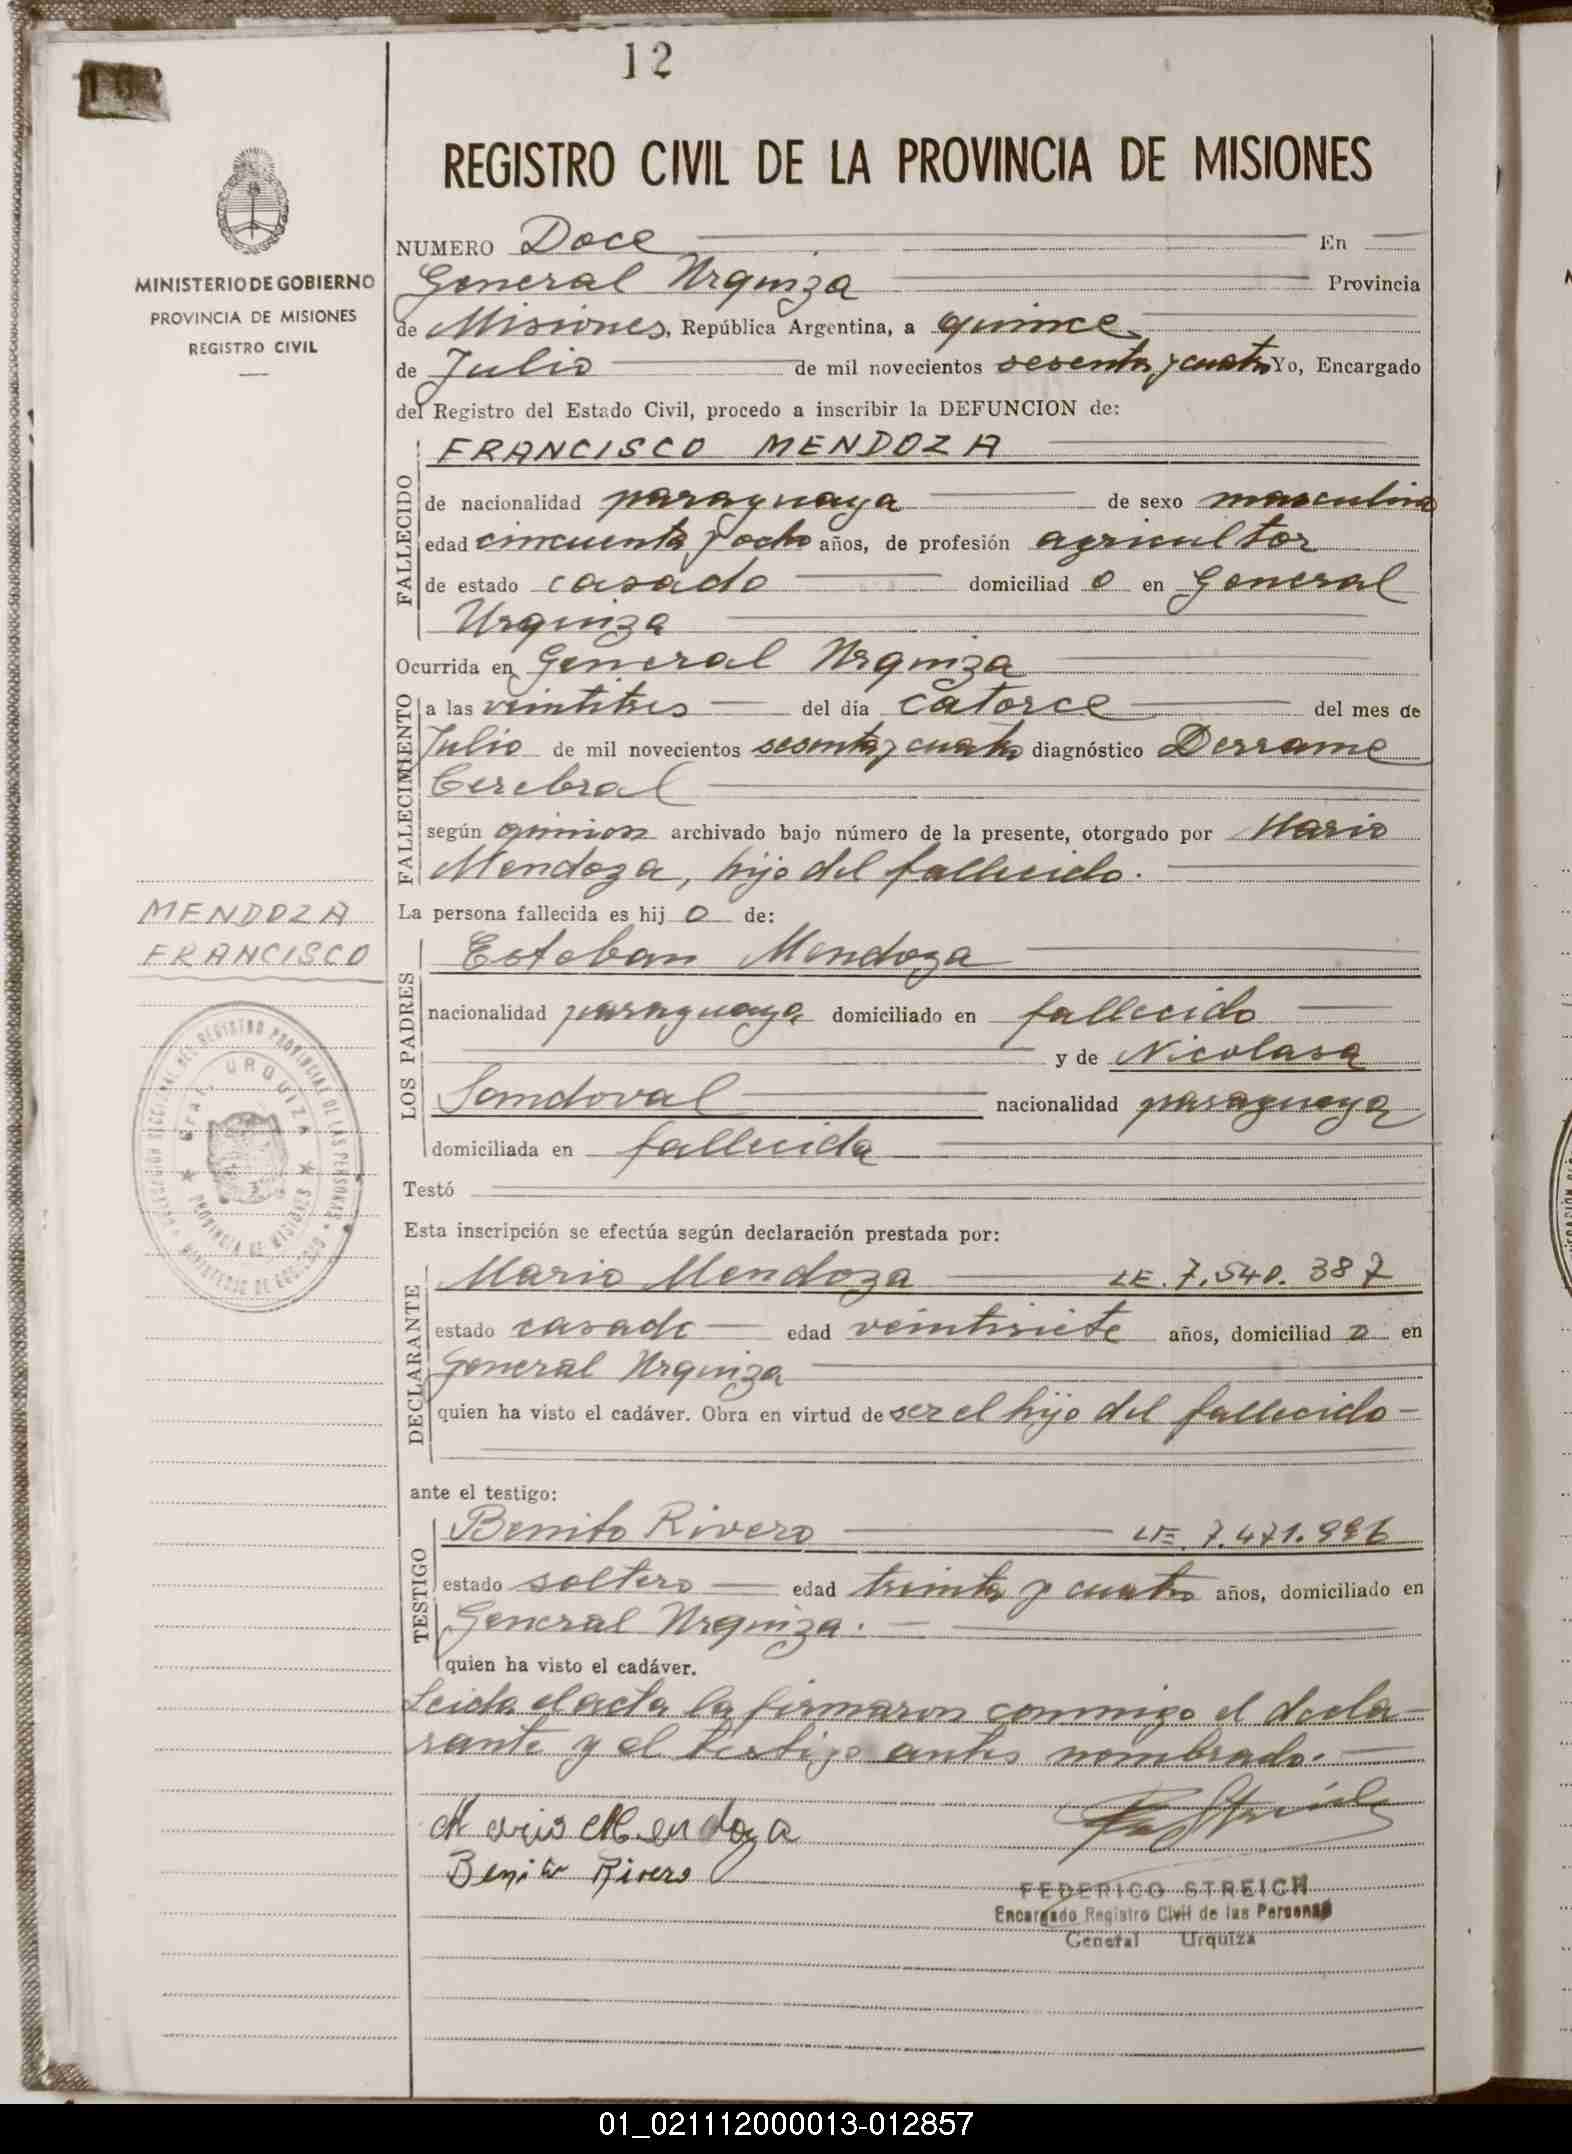 12
REGISTRO CIVIL DE LA PROVINCIA DE MISIONES
MINISTERIO DE GOBIERNO
PROVINCIA DE MISIONES
REGISTRO CIVIL
NUMERO Doce En
General Urquiza Provincia
de Misiones, República Argentina, a quince
de Julio de mil novecientos sesenta y cuatro Yo, Encargado
del Registro del Estado Civil, procedo a inscribir la DEFUNCION de:
FALLECIDO
FRANCISCO MENDOZA
de nacionalidad paraguaya de sexo masculino
edad cincuenta y ocho años, de profesión agricultor
de estado casado domiciliad o en General
Urquiza
Ocurrida en General Urquiza
FALLECIMIENTO
a las veintitres del día catorce del mes de
Julio de mil novecientos sesenta y cuatro diagnóstico Derrame
Cerebral
según opinion archivado bajo número de la presente, otorgado por Mario
Mendoza, hijo del fallecido.
MENDOZA
FRANCISCO
La persona fallecida es hij o de:
LOS PADRES
Esteban Mendoza
nacionalidad paraguaya domiciliado en fallecido
y de Nicolasa
Sandoval nacionalidad paraguaya
domiciliada en fallecida
Testó
Esta inscripción se efectúa según declaración prestada por:
DECLARANTE
Mario Mendoza LE. 7.540.387
estado casado edad veintisiete años, domiciliad o en
General Urquiza
quien ha visto el cadáver. Obra en virtud de ser el hijo del fallecido
ante el testigo:
TESTIGO
Benito Rivero LE. 7.471.996
estado soltero edad treinta y cuatro años, domiciliado en
General Urquiza.
quien ha visto el cadáver.
Leida el acta la firmaron conmigo el decla-
rante y el testigo antes nombrado.
Mario Mendoza
Benito Rivero
FEDERICO STREICH
Encargado Registro Civil de las Personas
General Urquiza
Gral. URQUIZA
PROVINCIA DE MISIONES
01_021112000013-012857